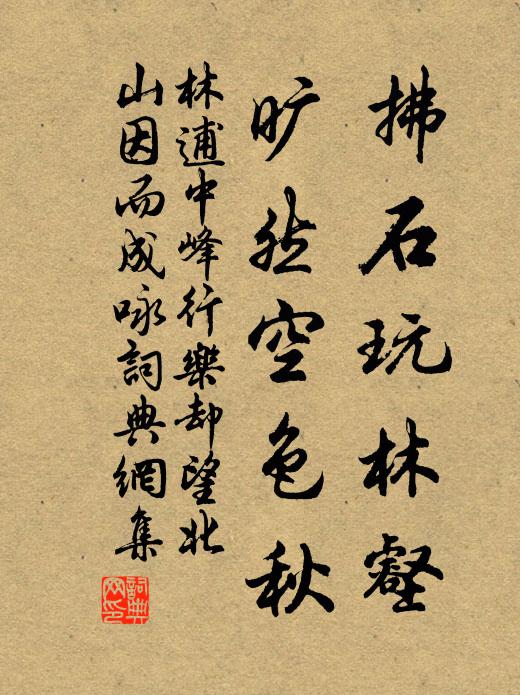 拂石玩林壑
旷然空色秋
林逋中峰行樂却望北
山因而成咏詞典網集
詞典网印